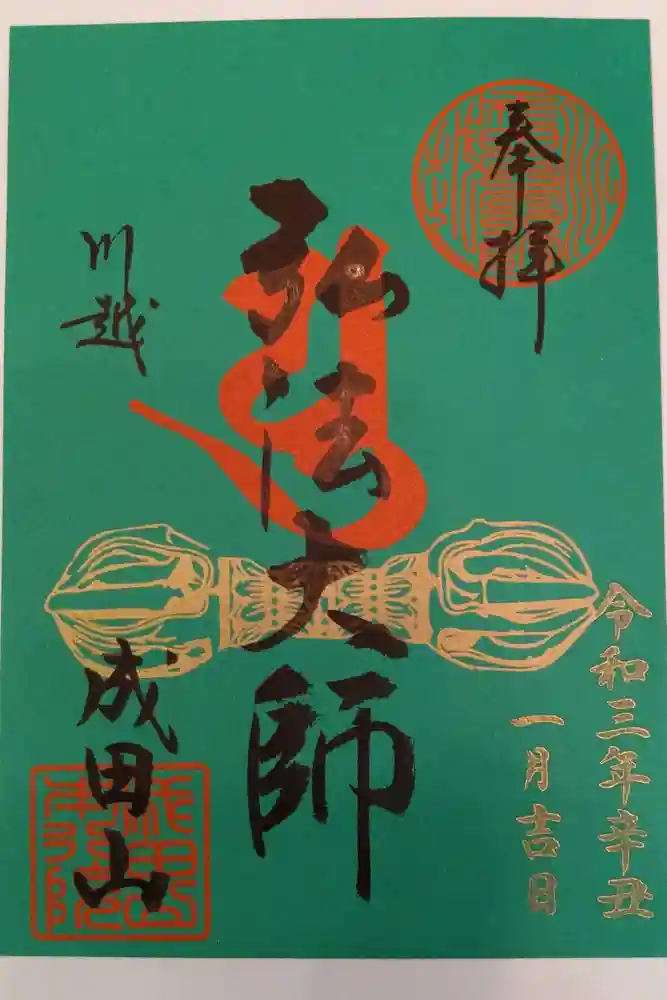 奉拝
令和三年辛丑
一月吉日
弘法大師
川越
成田山